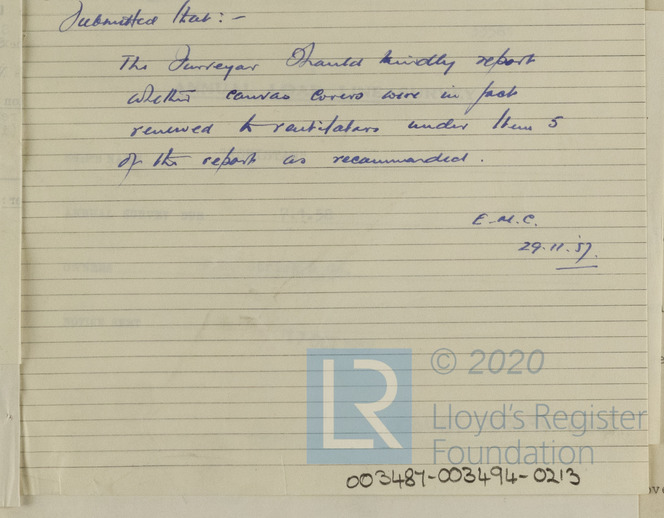 Submitted that:-
The Surveyor should kindly report
whether canvas covers were in fact
renewed to ventilators under Item 5
of the report as recommended.
E.M.C.
29.11.'57.
LR
© 2020
Lloyd's Register
Foundation
003487-003494-0213